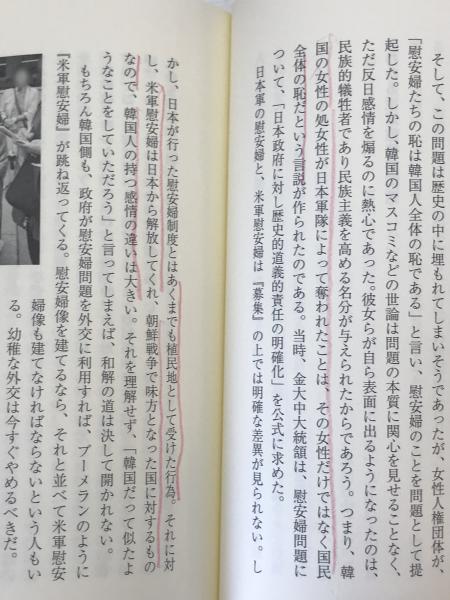 そして、この問題は歴史の中に埋もれてしまいそうであったが、女性人権団体が、
「慰安婦たちの恥は韓国人全体の恥である」と言い、慰安婦のことを問題として提
起した。しかし、韓国のマスコミなどの世論は問題の本質に関心を見せることなく、
ただ反日感情を煽るのに熱心であった。彼女らが自ら表面に出るようになったのは、
民族的犠牲者であり民族主義を高める名分が与えられたからであろう。つまり、韓
国の女性の処女性が日本軍隊によって奪われたことは、その女性だけではなく国民
全体の恥だという言説が作られたのである。当時、金大中大統領は、慰安婦問題に
ついて、「日本政府に対し歴史的道義的責任の明確化」を公式に求めた。
日本軍の慰安婦と、米軍慰安婦は『募集』の上では明確な差異が見られない。し
かし、日本が行った慰安婦制度とはあくまでも植民地として受けた行為。それに対
し、米軍慰安婦は日本から解放してくれ、朝鮮戦争で味方となった国に対するもの
なので、韓国人の持つ感情の違いは大きい。それを理解せず、「韓国だって似たよ
うなことをしていただろう」と言ってしまえば、和解の道は決して開かれない。
もちろん韓国側も、政府が慰安婦問題を外交に利用すれば、ブーメランのように
『米軍慰安婦』が跳ね返ってくる。慰安婦像を建てるなら、それと並べて米軍慰安
婦像も建てなければならないという人もい
る。幼稚な外交は今すぐやめるべきだ。